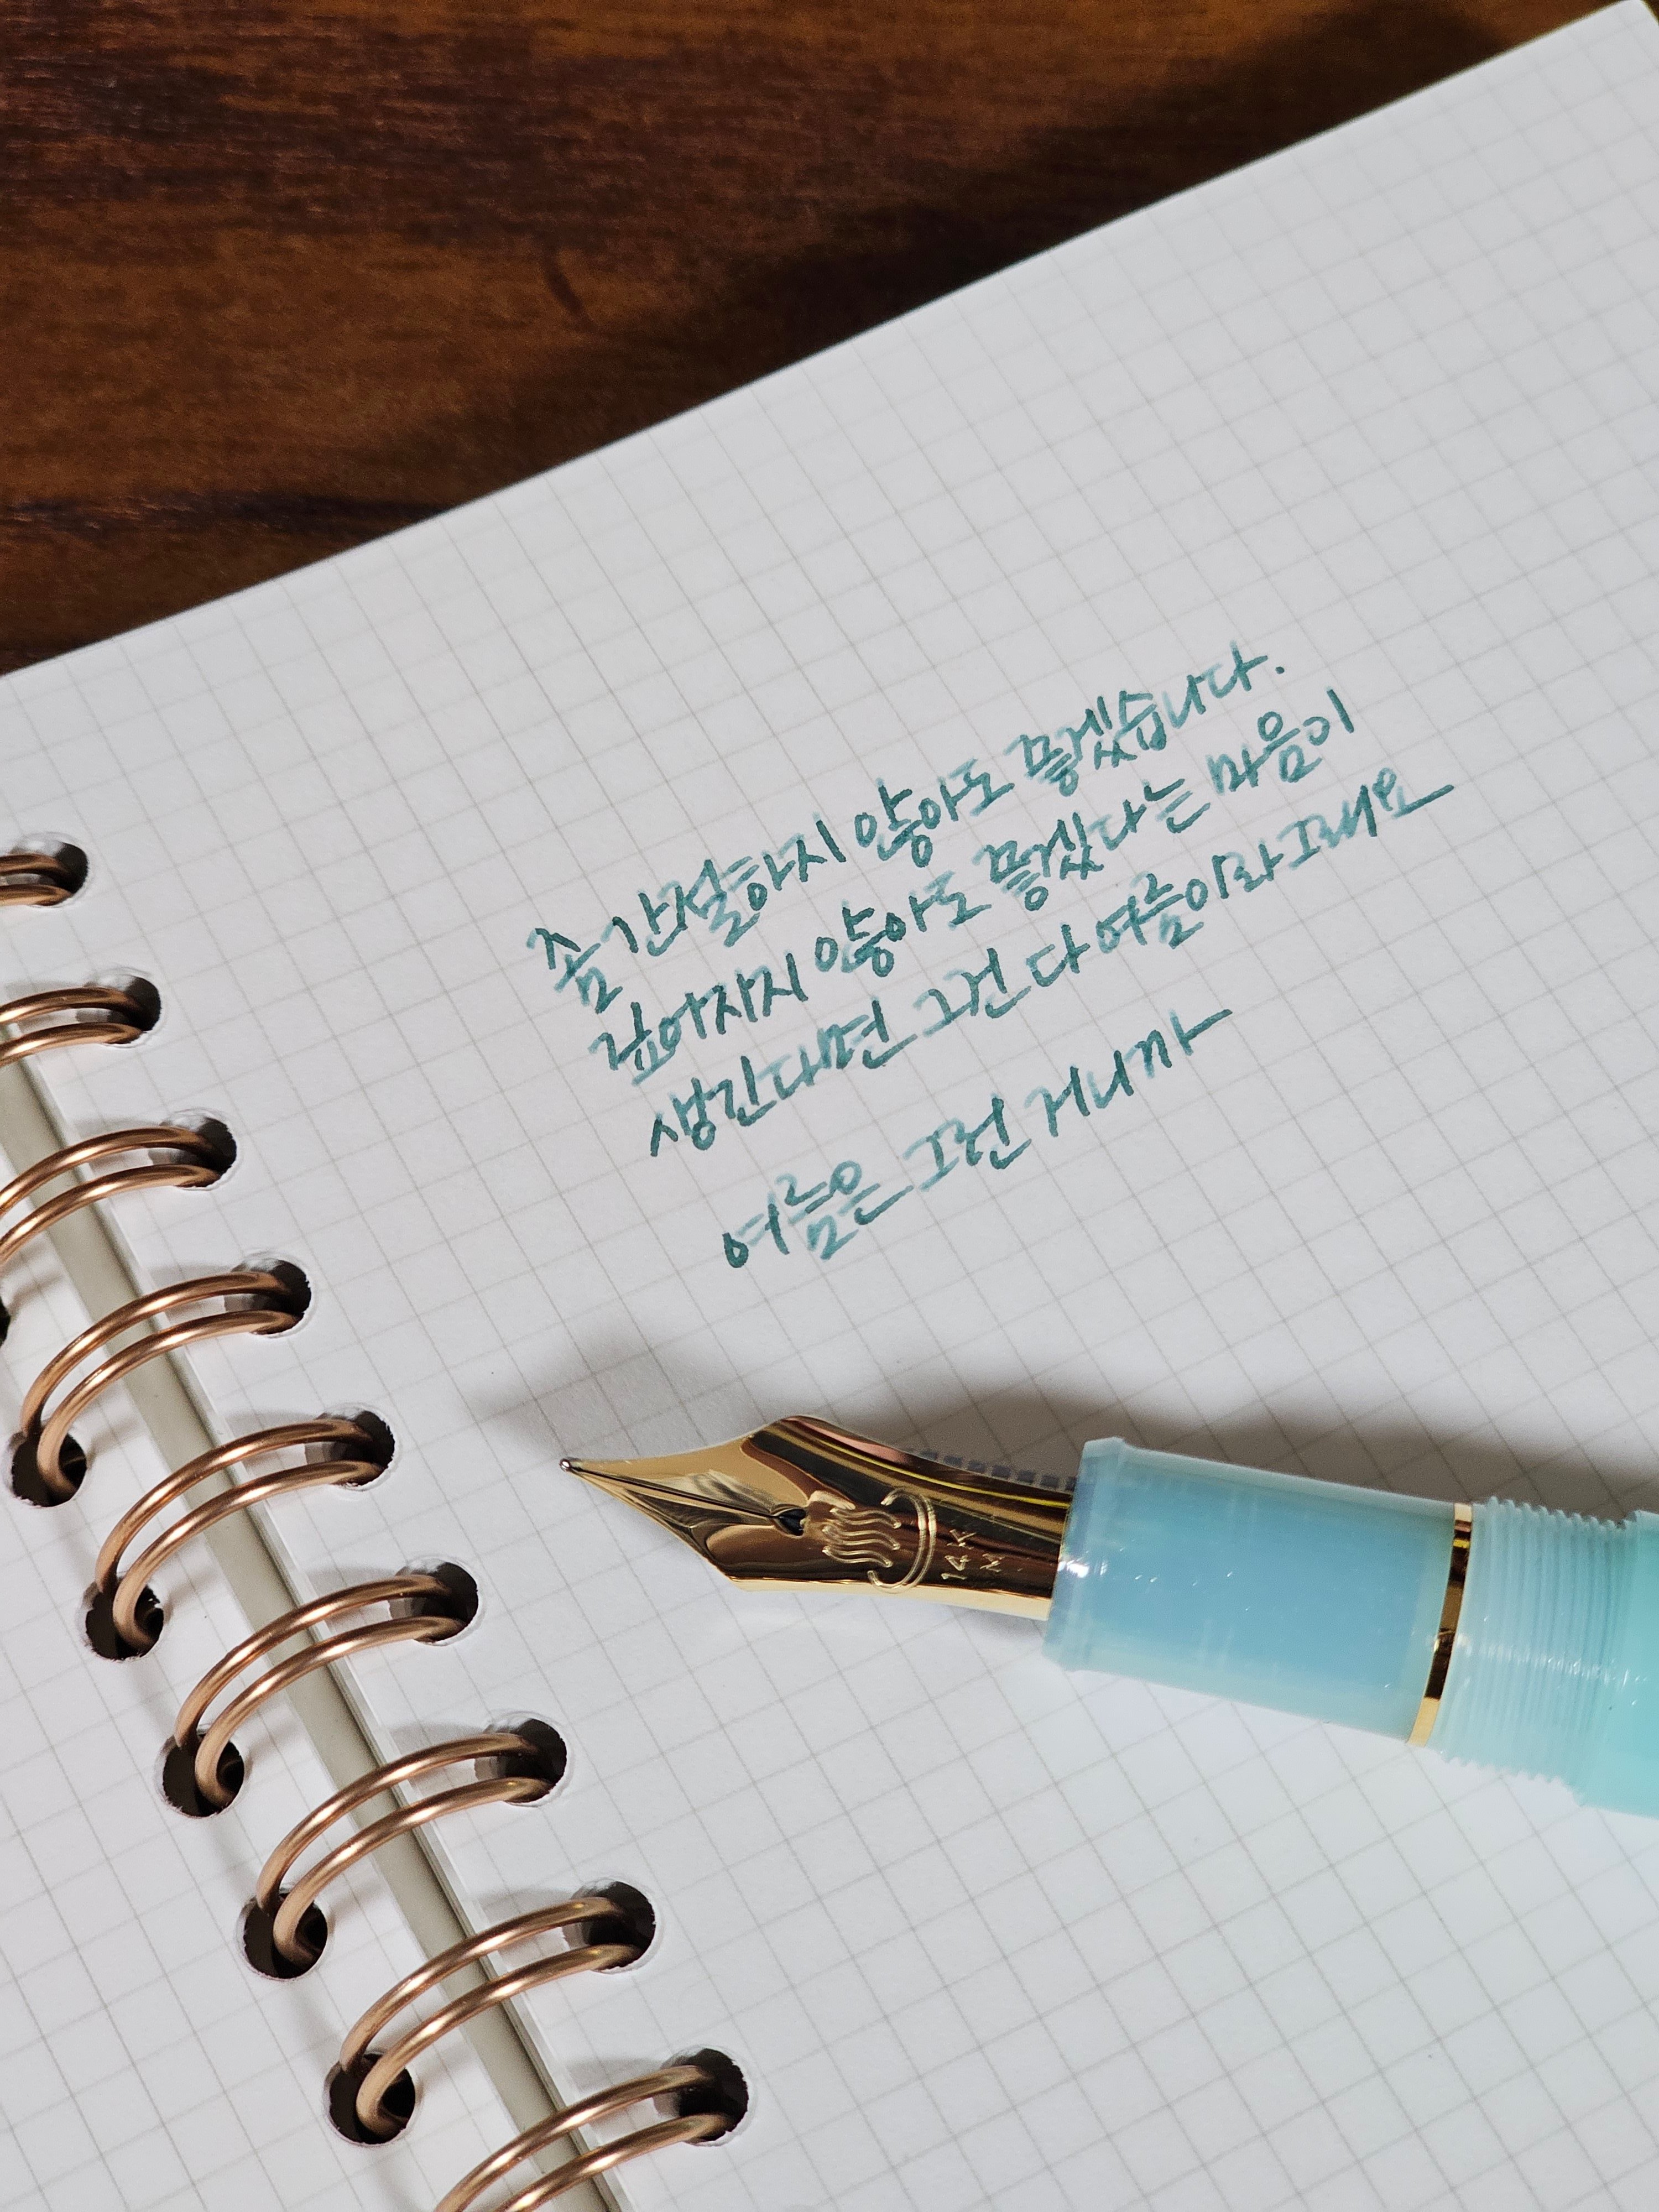 좀 간절하지 않아도 좋겠습니다.
깊어지지 않아도 좋겠다는 마음이
생긴다면 그건 다 여름이라 그래요
여름은 그런 거니까
14K